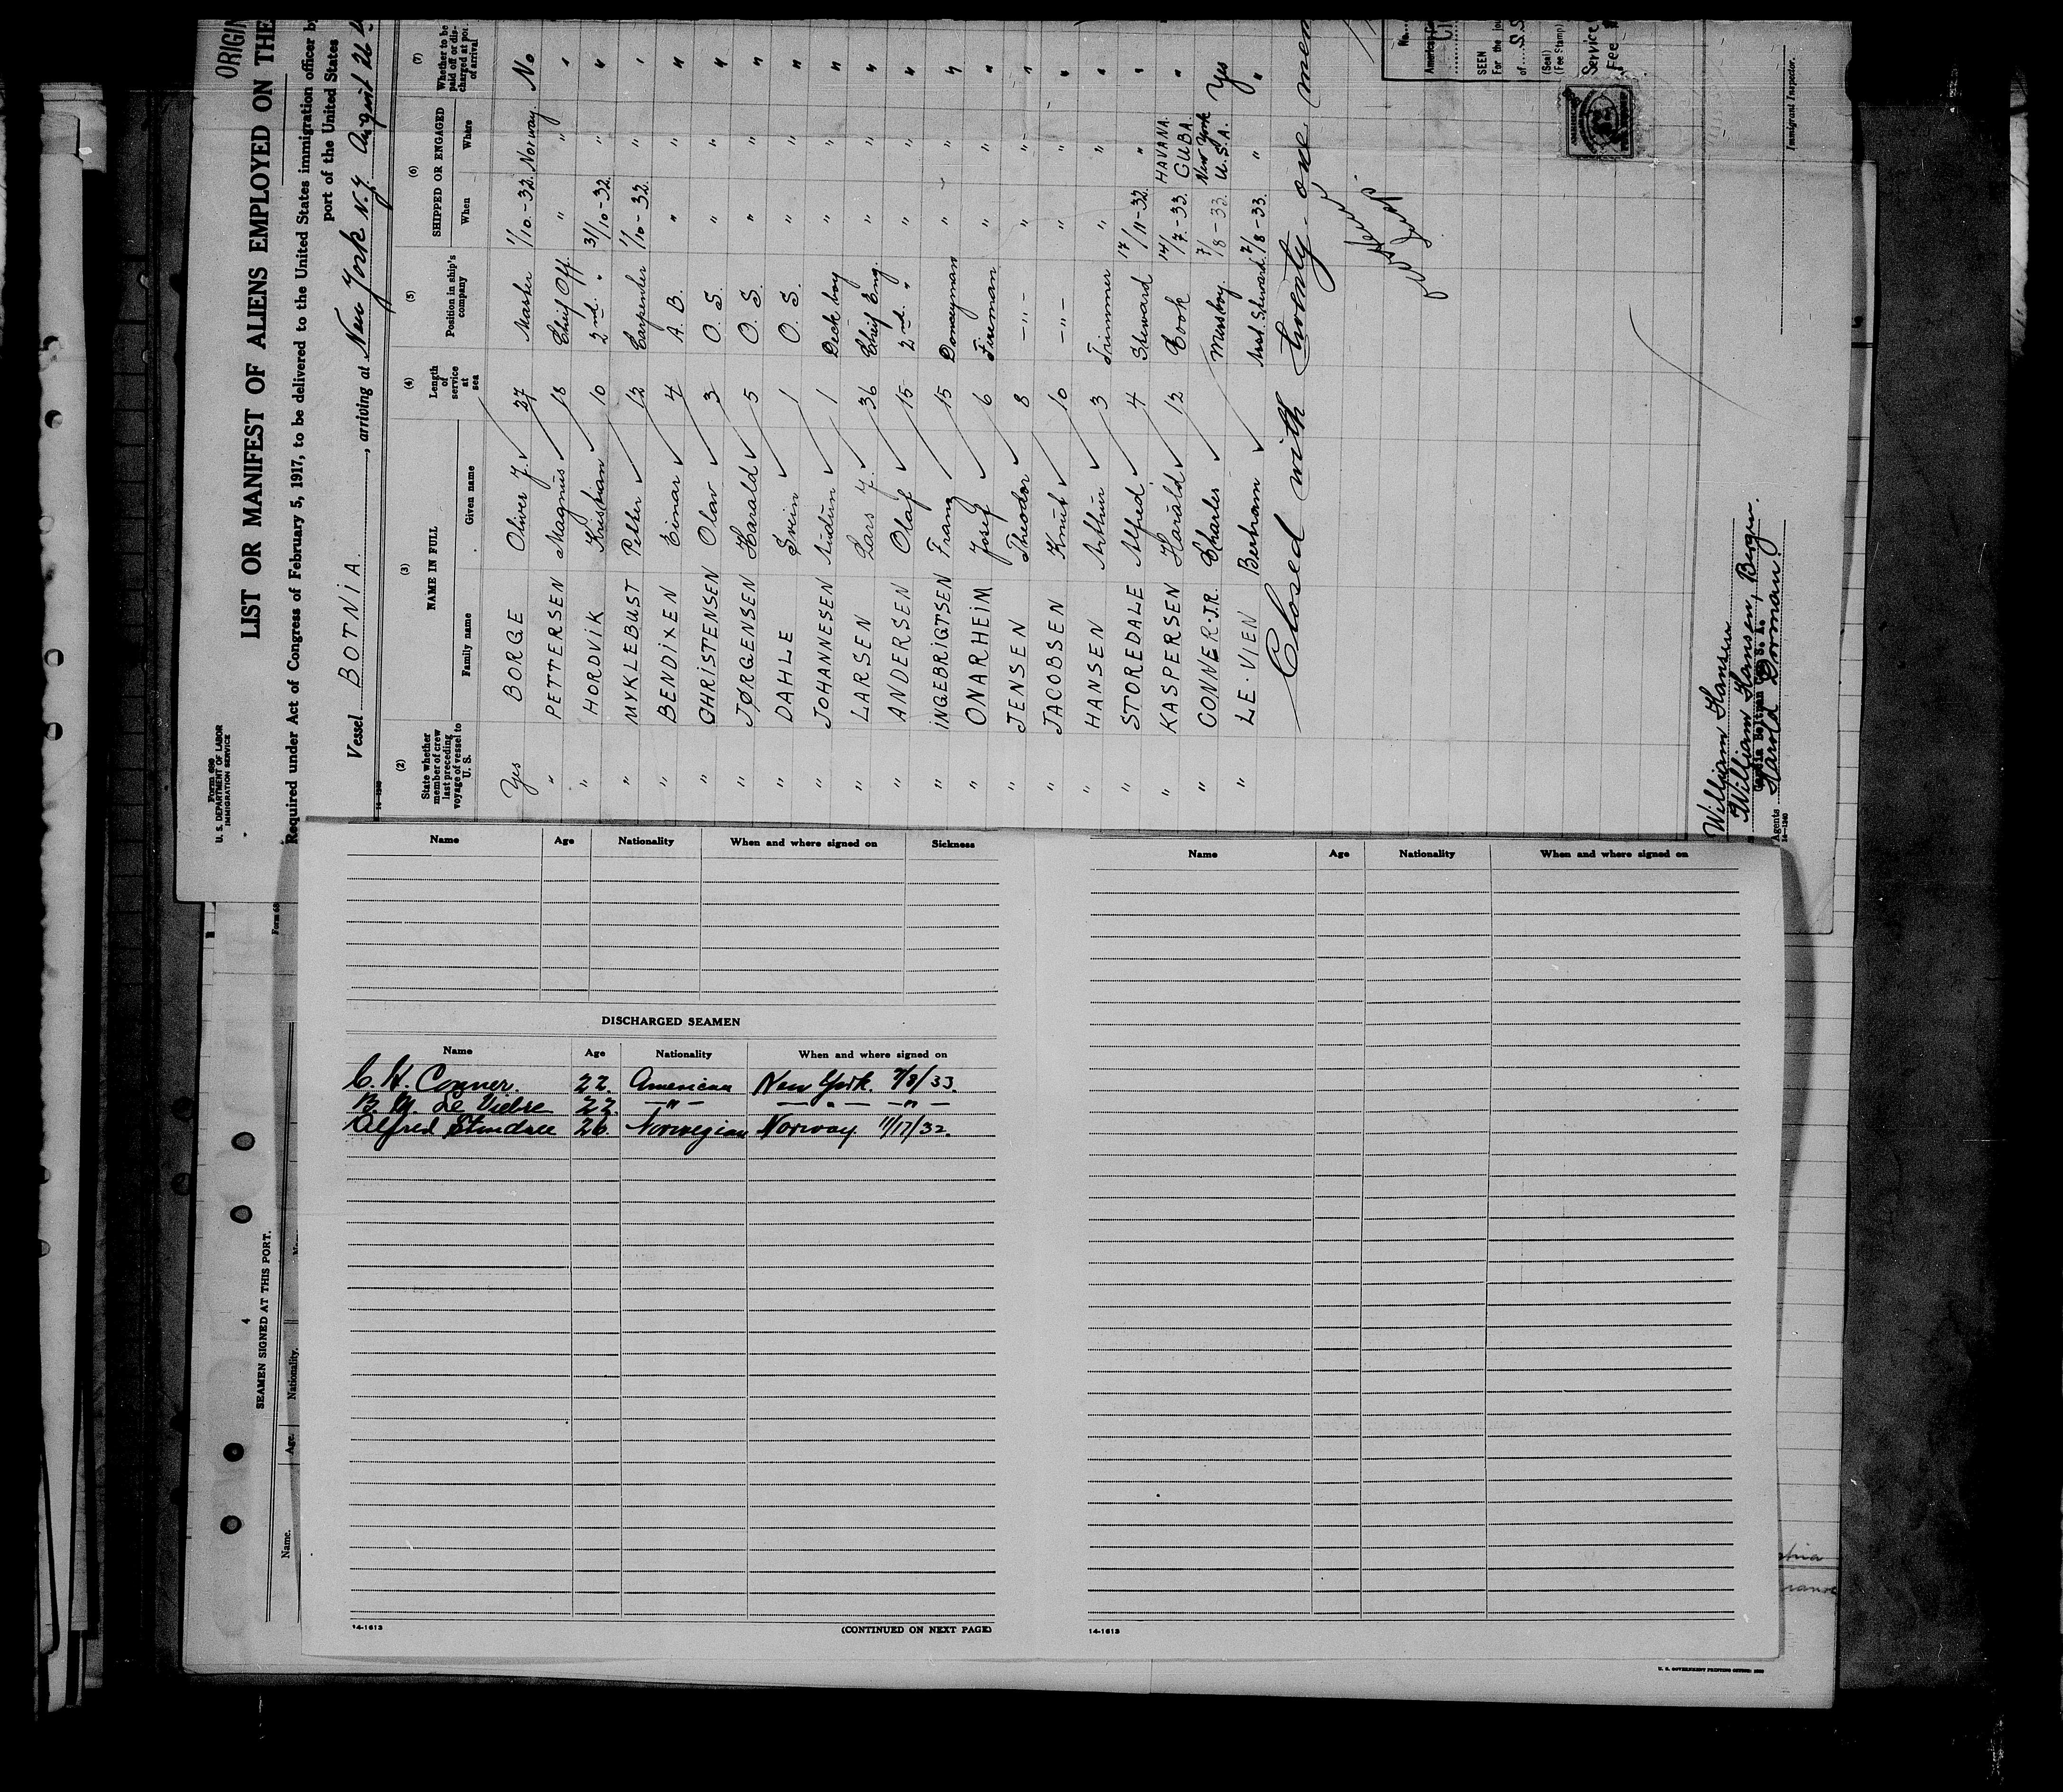 ORIGIN
Form 689
U. S. DEPARTMENT OF LABOR
IMMIGRATION SERVICE
LIST OR MANIFEST OF ALIENS EMPLOYED ON THE
Required under Act of Congress of February 5, 1917, to be delivered to the United States immigration officer by
port of the United States
Vessel BOTNIA, arriving at New York N.Y. August 26
14-1240
(2) (3) (4) (5) (6) (7)
State whether member of crew last preceding voyage of vessel to U. S.
NAME IN FULL
Family name Given name
Length of service at sea
Position in ship's company
SHIPPED OR ENGAGED
When Where
Whether to be paid off or discharged at port of arrival
Yes BORGE Oliver J. 27 Master 1/10-32. Norway. No
" PETTERSEN Magnus 18 Chief Off. " " "
" HORDVIK Kristian 10 2nd. " 31/10-32. " "
" MYKLEBUST Petter 12 Carpenter 1/10-32. " "
" BENDIXEN Einar 4 A. B. " " "
" CHRISTENSEN Olav 3 O. S. " " "
" JØRGENSEN Harald 5 O. S. " " "
" DAHLE Svein 1 O. S. " " "
" JOHANNESEN Audun 1 Deck boy " " "
" LARSEN Lars J. 36 Chief Eng. " " "
" ANDERSEN Olaf 15 2nd. " " " "
" INGEBRIGTSEN Franz 15 Donceyman " " "
" ONARHEIM Josef 6 Fireman " " "
" JENSEN Theodor 8 -"- " " "
" JACOBSEN Knut 10 -"- " " "
" HANSEN Arthur 3 Trimmer " " "
" STOREDALE Alfred 4 Steward 17/11-32. " "
" KASPERSEN Harald 12 Cook 14/7-33. HAVANA. CUBA. "
" CONNER. JR. Charles Messboy 7/8-33. New York U.S.A. Yes
" LE. VIEN Bertram Asst. Steward. 7/8-33. " "
Closed with twenty-one mem
No.
American
SEEN
For the jou
of S.S
(Seal)
(Fee Stamp)
Service
Fee
Immigrant Inspector.
William Hansen
William Hansen, Bergen.
Agents Harold Dorman
14-1240
Name Age Nationality When and where signed on Sickness
DISCHARGED SEAMEN
Name Age Nationality When and where signed on
C. H. Conner. 22. American New York. 7/8/33.
B. M. Le 22. —"— —"— —"—
Alfred 26. Norwegian Norway 11/17/32.
14-1613
(CONTINUED ON NEXT PAGE)
Name Age Nationality When and where signed on
14-1613
4
SEAMEN SIGNED AT THIS PORT.
Name. Age. Nationality.
U. S. GOVERNMENT PRINTING OFFICE